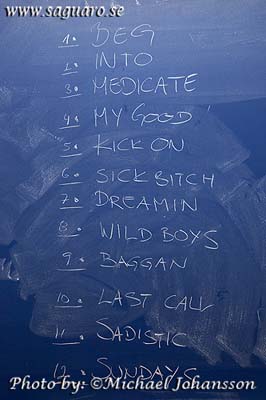 www.saguaro.se
1. BEG
2. INTO
3. MEDICATE
4. MY GOOD
5. KICK ON
6. SICK BITCH
7. DREAMIN
8. WILD BOYS
9. BAGGAN
10. LAST CALL
11. SADISTIC
12. SUNDAYS
Photo by: ©Michael Johansson